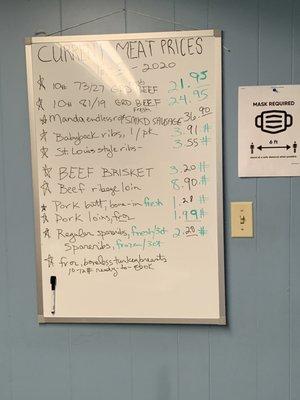 CURRENT MEAT PRICES
2020
10# 73/27 GRD BEEF 21.95
10# 81/19 GRD BEEF 24.95
Fresh
Manda endless rope SMKD SAUSAGE 36.90
Babyback ribs, 1/pk 3.91 #
St. Louis style ribs- 3.55 #
BEEF BRISKET 3.20 #
Beef ribeye loin 8.90 #
Pork butt, bone-in fresh 1.28 #
Pork loins, fzn 1.99 #
Regular spareribs, fresh/3ct 2.20 #
Spareribs, frozen/3ct
fzn, boneless turkey breasts
10-12# ready-to-cook
MASK REQUIRED
6 ft